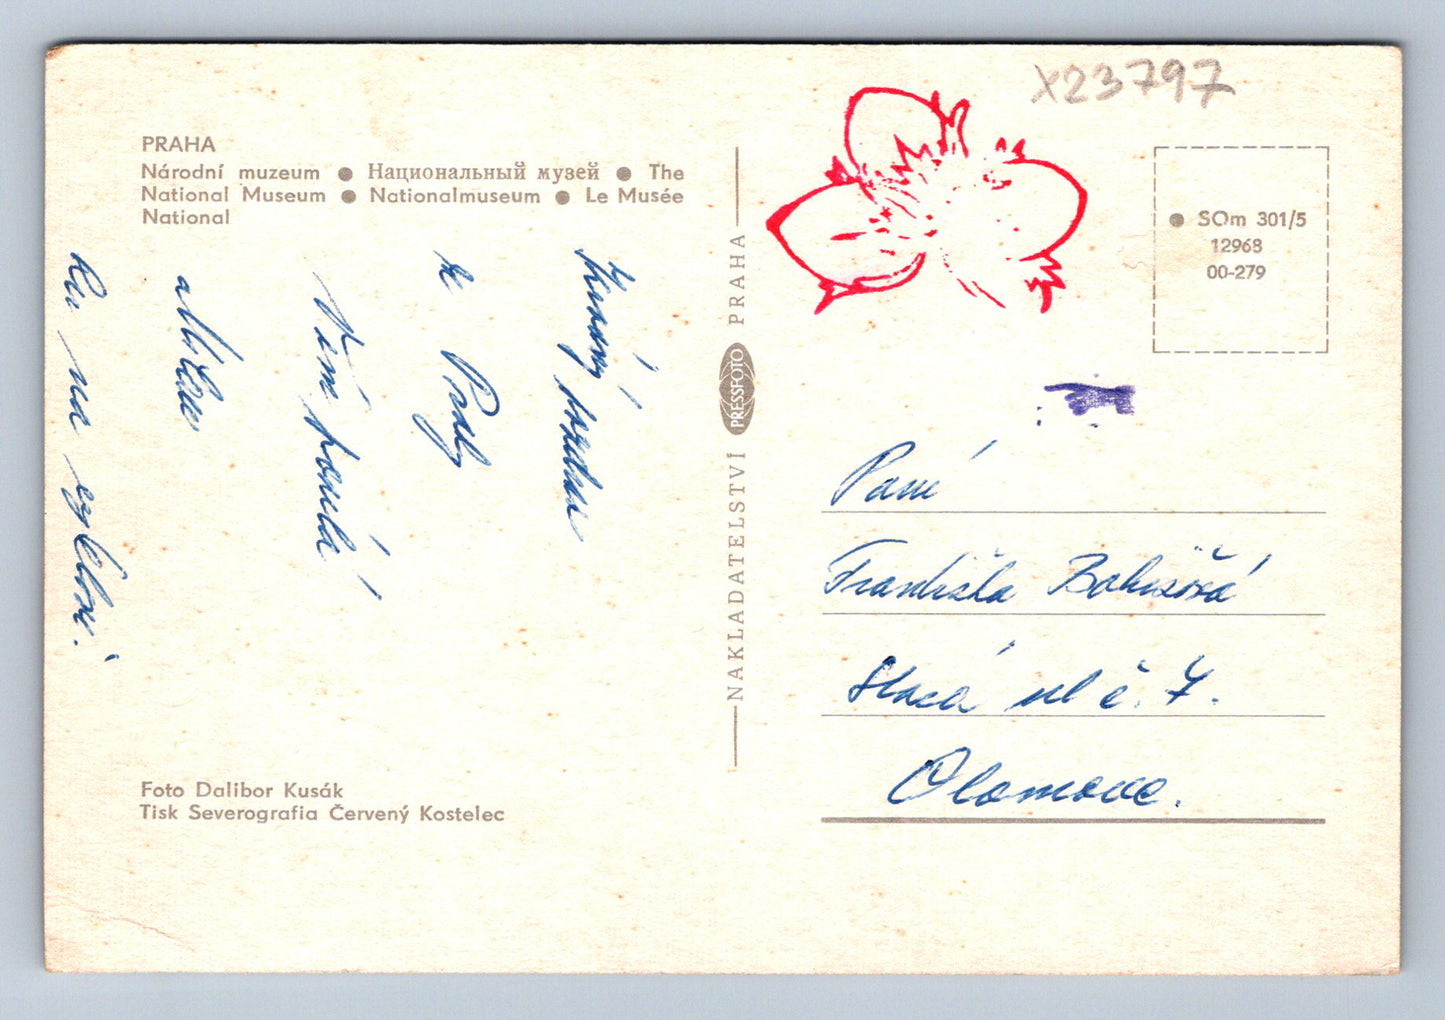 x23797
PRAHA
Národní muzeum ● Национальный музей ● The
National Museum ● Nationalmuseum ● Le Musée
National
● SOm 301/5
12968
00-279
Krásný pozdrav
z Prahy
Vám posílá
na
NAKLADATELSTVÍ PRESSFOTO PRAHA
Paní
Františka
ul č. 7.
Olomouc.
Foto Dalibor Kusák
Tisk Severografia Červený Kostelec